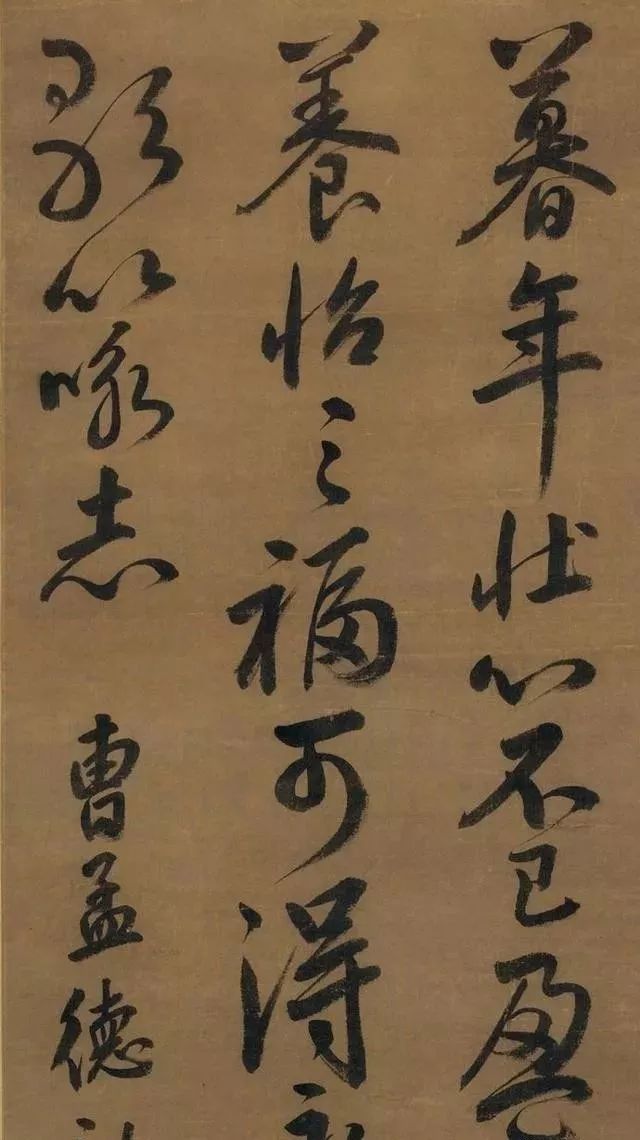 暮年壮心不已盈
養怡之福可得
歌以咏志 曹孟德